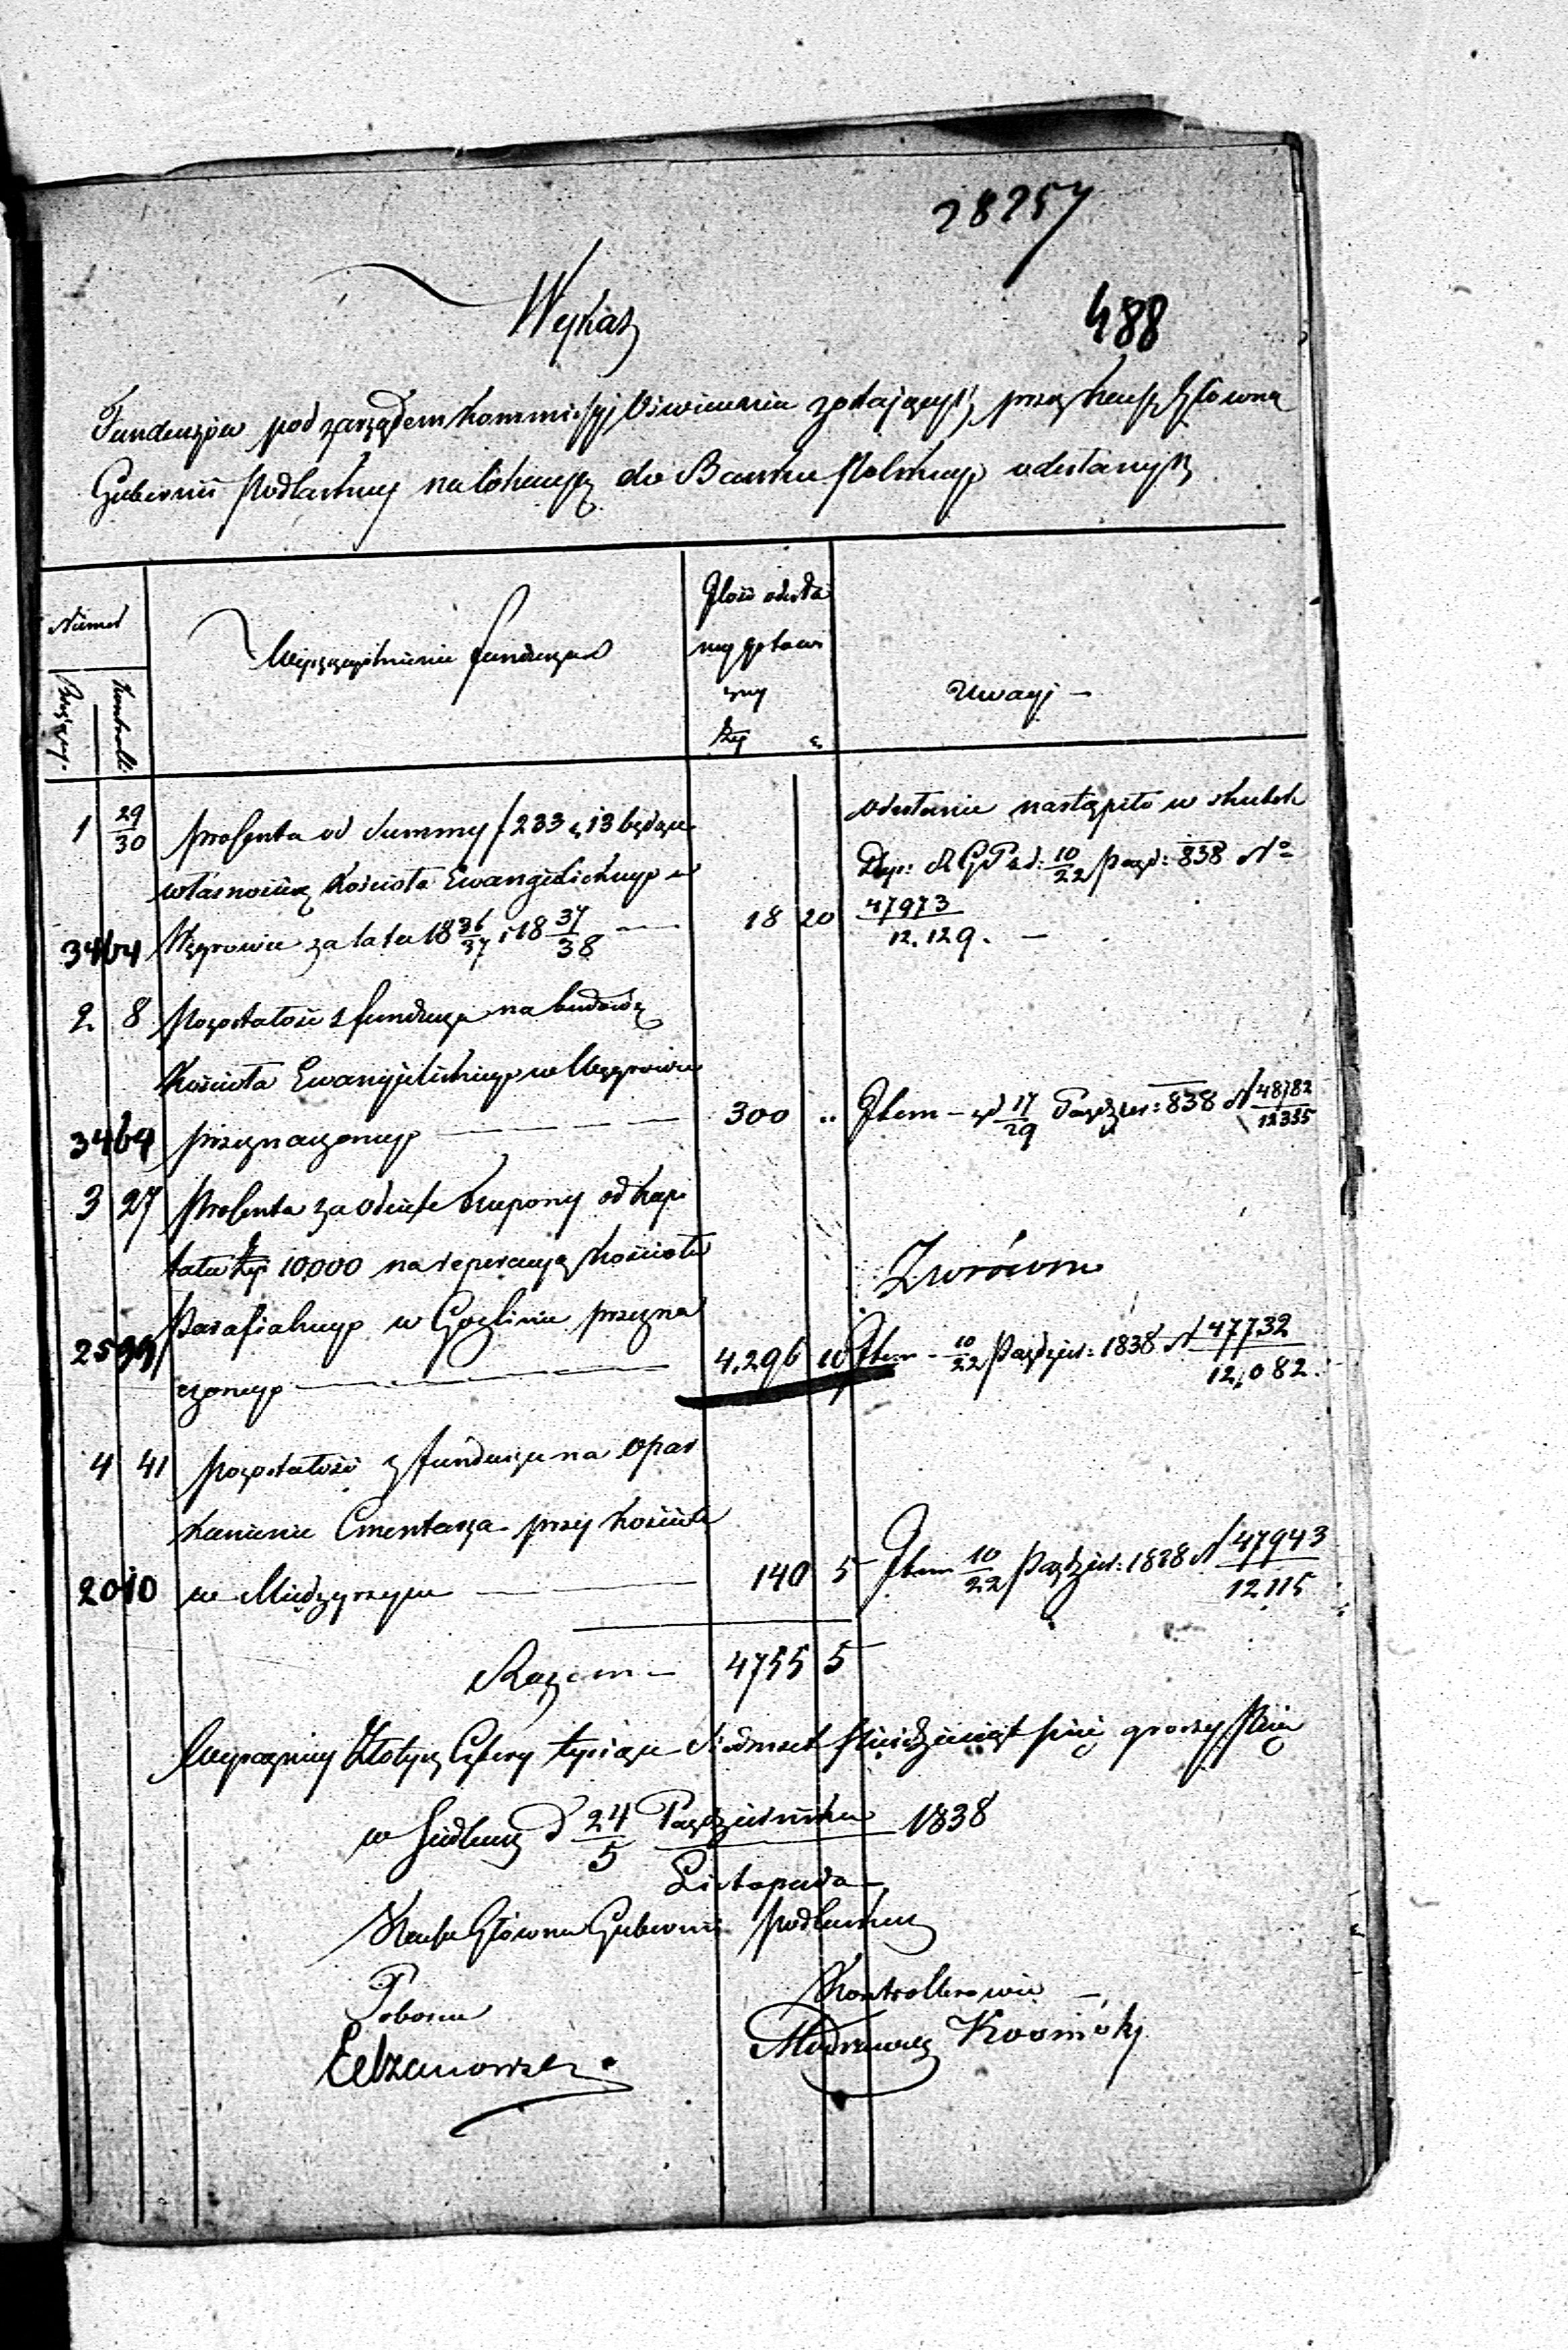 28257
488
Wykaz
Funduszów pod zarządem Kommissyi Oświecenia zostających przez Kassę Główną
Gubernii Podlaskiey na lokacyę do Banku Polskiego odesłanych
Numer
Bieżący
Kontrolli
Wyszczególnienie funduszu
Ilość odesła
ney gotowi
zny
Złp g
Uwagi —
1 29/30 Procenta od Summy f 233 g 13 będące
własnością Kościoła Ewangelickiego w
3464 Węgrowie za lata 18 36/37 i 18 37/38 — 18 20
odesłanie nastąpiło w skutek
Dep: R G P z d: 10/22 Paźd: 838 No
47973/12.129. —
2 8 Pozostałość z funduszu na budowę
Kościoła Ewangelickiego w Węgrowie
3464 przeznaczonego — 300 ..
Item — z d 17/29 Paździer: 838 N 48782/12335
3 27 Procenta za odcięte kupony od kapi
tału Złp 10,000 na reperacyą Kościoła
Parafialnego w Goźlinie przezna
2599 czonego — 4,296 10
Zwrócono
Item — 10/22 Paździer: 1838 N 47732/12,082.
4 41 Pozostałość z funduszu na opar
kanienie Cmentarza przy Kościele
2010 w Międzyrzycu — 140 5
Item 10/22 Paździer: 1838 N 47943/12115
Razem — 4755 5
Wyraźniey Złotych Cztery tysiące Siedmset Pięćdziesiąt pięć groszy Pięć
w Siedlcach d 24/5 Października/Listopada 1838
Kassa Główna Gubernii Podlaskiey
Poborca
Kontrollerowie —